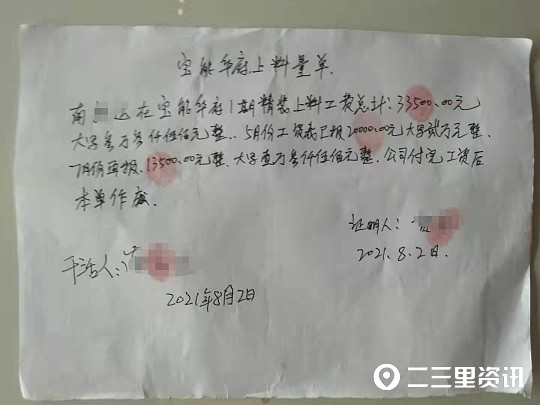 宝能华府上料量单.
南 达在宝能华府1期精装上料工资总计:33500.00元
大写叁万叁仟伍佰元整.5月份工资表已报20000.00元大写贰万元整.
7月份再报.13500.00元整.大写壹万叁仟伍佰元整.公司付完工资后
本单作废.
证明人:
2021.8.2日.
干活人:
2021年8月2日
二三里资讯